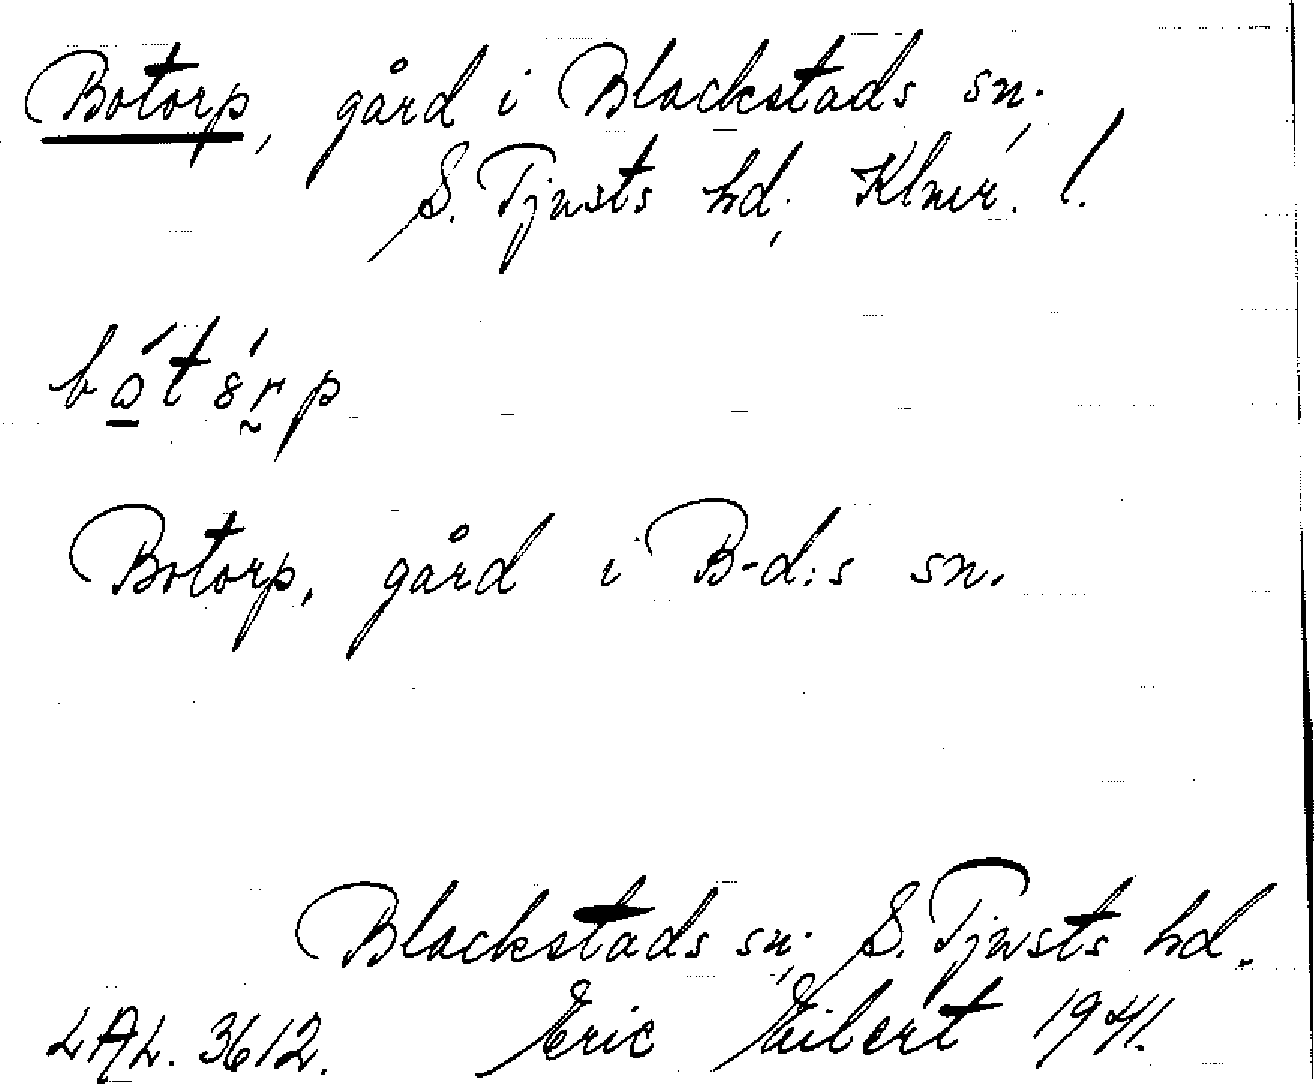 Botorp, gård i Blackstads sn.,
S. Tjusts hd., Klmr. l.
bó̲t ɞŕ̰p
Botorp, gård i B-d:s sn.
Blackstads sn., S. Tjusts hd.
LAL. 3612. Eric Eilert 1941.